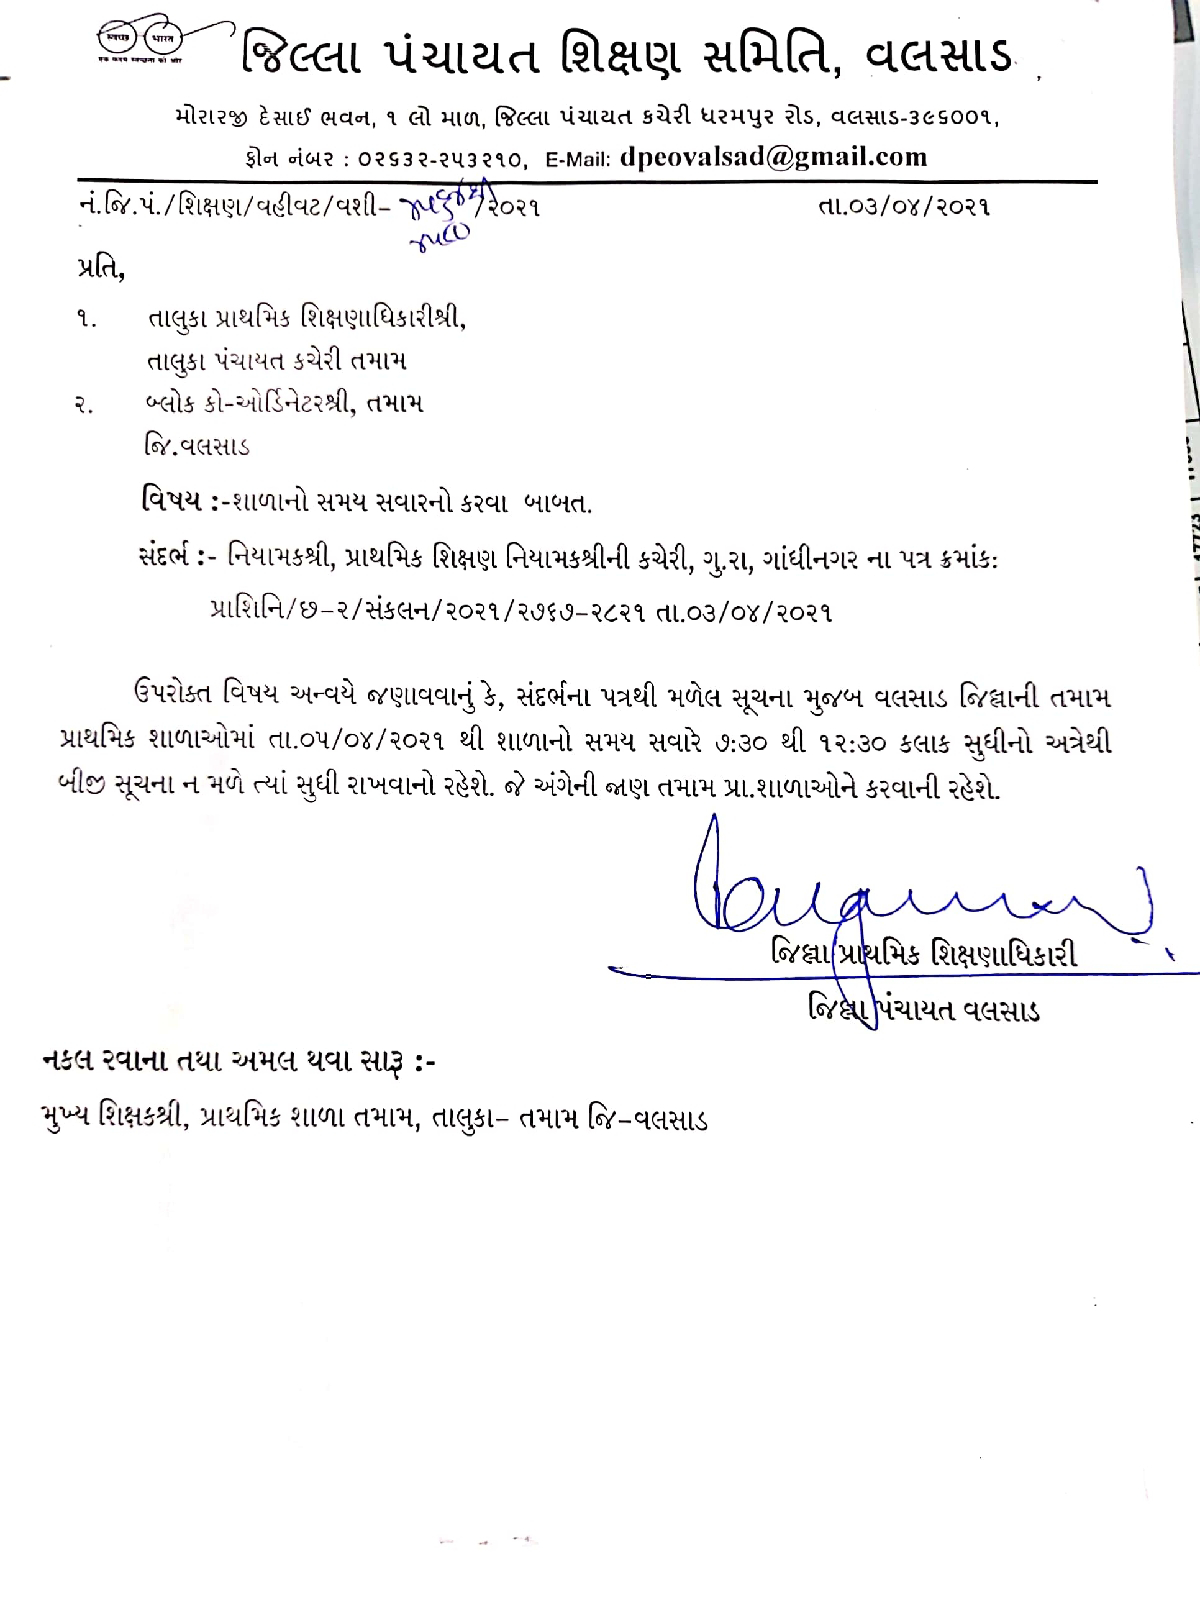 स्वच्छ भारत
एक कदम स्वच्छता की ओर
જિલ્લા પંચાયત શિક્ષણ સમિતિ, વલસાડ
મોરારજી દેસાઈ ભવન, ૧ લો માળ, જિલ્લા પંચાયત કચેરી ધરમપુર રોડ, વલસાડ-૩૯૬૦૦૧,
ફોન નંબર : ૦૨૬૩૨-૨૫૩૨૧૦, E-Mail: dpeovalsad@gmail.com
નં.જિ.પં./શિક્ષણ/વહીવટ/વશી- /૨૦૨૧ તા.૦૩/૦૪/૨૦૨૧
પ્રતિ,
૧. તાલુકા પ્રાથમિક શિક્ષણાધિકારીશ્રી,
તાલુકા પંચાયત કચેરી તમામ
૨. બ્લોક કો-ઓર્ડિનેટરશ્રી, તમામ
જિ.વલસાડ
વિષય :-શાળાનો સમય સવારનો કરવા બાબત.
સંદર્ભ :- નિયામકશ્રી, પ્રાથમિક શિક્ષણ નિયામકશ્રીની કચેરી, ગુ.રા, ગાંધીનગર ના પત્ર ક્રમાંક:
પ્રાશિનિ/છ-૨/સંકલન/૨૦૨૧/૨૭૬૭-૨૮૨૧ તા.૦૩/૦૪/૨૦૨૧
ઉપરોક્ત વિષય અન્વયે જણાવવાનું કે, સંદર્ભના પત્રથી મળેલ સૂચના મુજબ વલસાડ જિલ્લાની તમામ
પ્રાથમિક શાળાઓમાં તા.૦૫/૦૪/૨૦૨૧ થી શાળાનો સમય સવારે ૭:૩૦ થી ૧૨:૩૦ કલાક સુધીનો અત્રેથી
બીજી સૂચના ન મળે ત્યાં સુધી રાખવાનો રહેશે. જે અંગેની જાણ તમામ પ્રા.શાળાઓને કરવાની રહેશે.
જિલ્લા પ્રાથમિક શિક્ષણાધિકારી
જિલ્લા પંચાયત વલસાડ
નકલ રવાના તથા અમલ થવા સારૂ :-
મુખ્ય શિક્ષકશ્રી, પ્રાથમિક શાળા તમામ, તાલુકા- તમામ જિ-વલસાડ